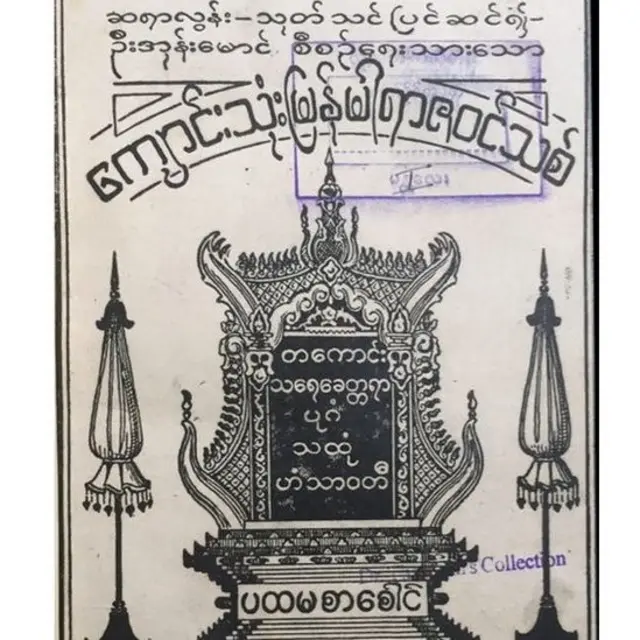 ဆရာလွန်း–သုတ်သင်ပြင်ဆင်၍–
ဦးအုန်းမောင် စီစဉ်ရေးသားသော
ကျောင်းသုံးမြန်မါရာဇဝင်သစ်
တကောင်း
သရေခေတ္တရာ
ပုဂံ
သထုံ
ဟံသာဝတီ
's Collection
ပထမစာစောင်